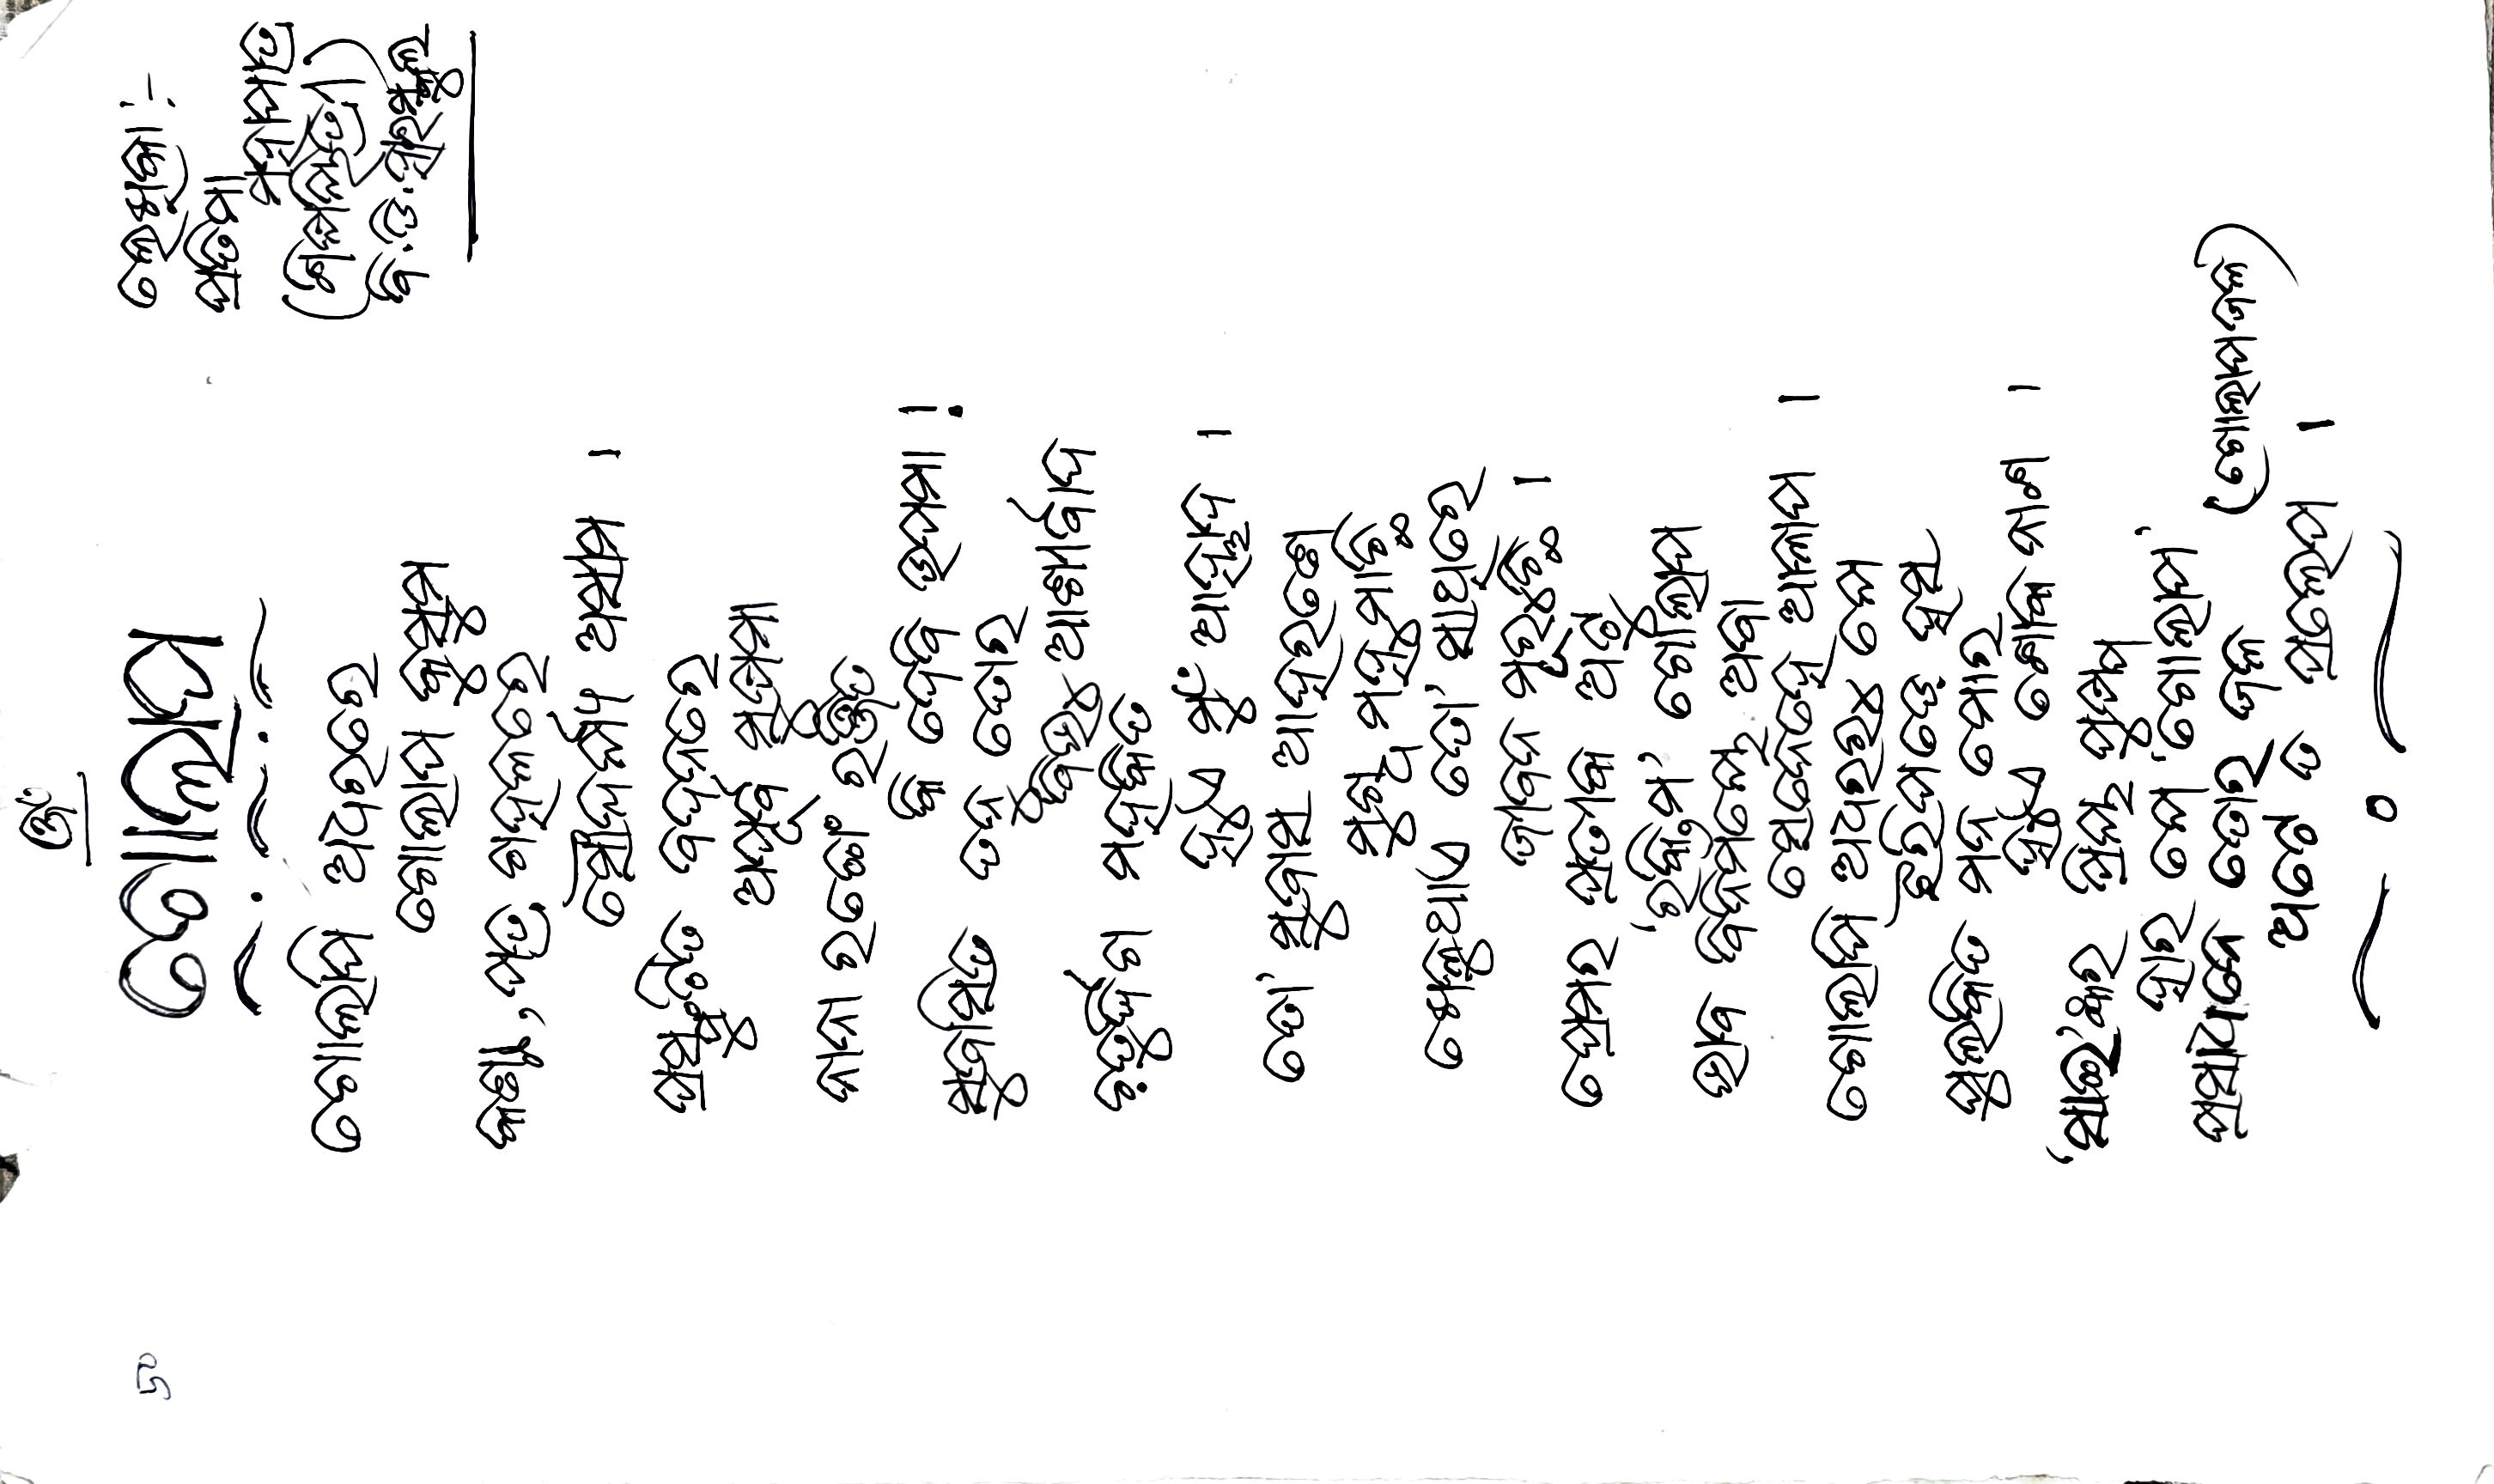 ଓଁ
୫୦
ଗୋଲାପ
ଲେଖିକା :-
ପ୍ରତିମା
ମହାପାତ୍ର
(ଶିକ୍ଷୟିତ୍ରୀ)
ବି.ଡି.ହାଇସ୍କୁଲ
ଗୋଲାପି ଅଧରରେ
ଗୋଲାପ କୁସୁମ
କଣ୍ଟା, ପତ୍ର ଗହଳରେ
ସୌନ୍ଦର୍ଯ୍ୟ ଅସୀମ ।
ପ୍ରସ୍ଫୁଟିତ ବଦନରେ
ଅପୂର୍ବ ସୁଷମା
ନାନା ରଙ୍ଗେ ରଞ୍ଜିତ
କି ଦେବି ଉପମା !
ସୁବାସିତ ତନୁ ତୋର
ବିଭୁଙ୍କ ଆଶୀର୍ବାଦ
ଚତୁର୍ଦ୍ଦିଗ ମହକିତ
ହୁଏ ମୁଁ ଆହ୍ଲାଦ ।
ତୋ' ସୁବାସ ଆହରଣେ
ମୁଗ୍ଧ ମହୁମାଛି
ଖେଳୁଥାଏ ତୋ' ସାଥିରେ
ଜୀବନ ମୂର୍ଚ୍ଛି ।
ପ୍ରେମର ପ୍ରତୀକ ଅଟୁ
'ରକ୍ତିମ' ଗୋଲାପ
ଭାବ ବିନିମୟେ ଅବା
ସେନେହେ ଆଳାପ ।
ଗୋଲାପି ଅଧରରୁ ଯେ
ଝରିପଡ଼େ ହସ
ପୁଲକିତ ମନ ମୋର
ହୁଏ ଶୋକ ନାଶ ।
'ସାଇ'ଙ୍କର ପ୍ରିୟ ପୁଷ୍ପ
ହାର ଯେ 'ଗୋଲାପ'
ପ୍ରସାଧନେ ତୋର ଜଳ (ଗୋଲାପଜଳ)
ଅଟେ ତ ପ୍ରଲେପ ।
୦